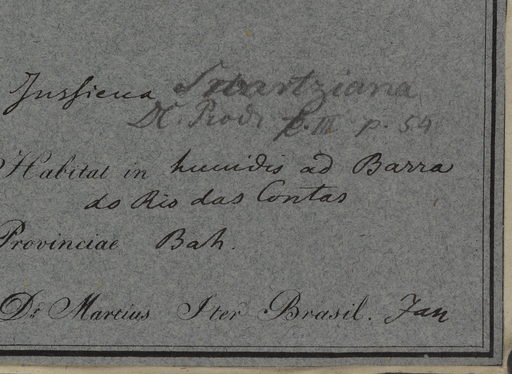 Jussieua Swartziana
DC. Prodr. p. III p. 54
Habitat in humidis ad Barra
do Rio das Contas
Provinciae Bah.
Dr. Martius Iter Brasil. Jan